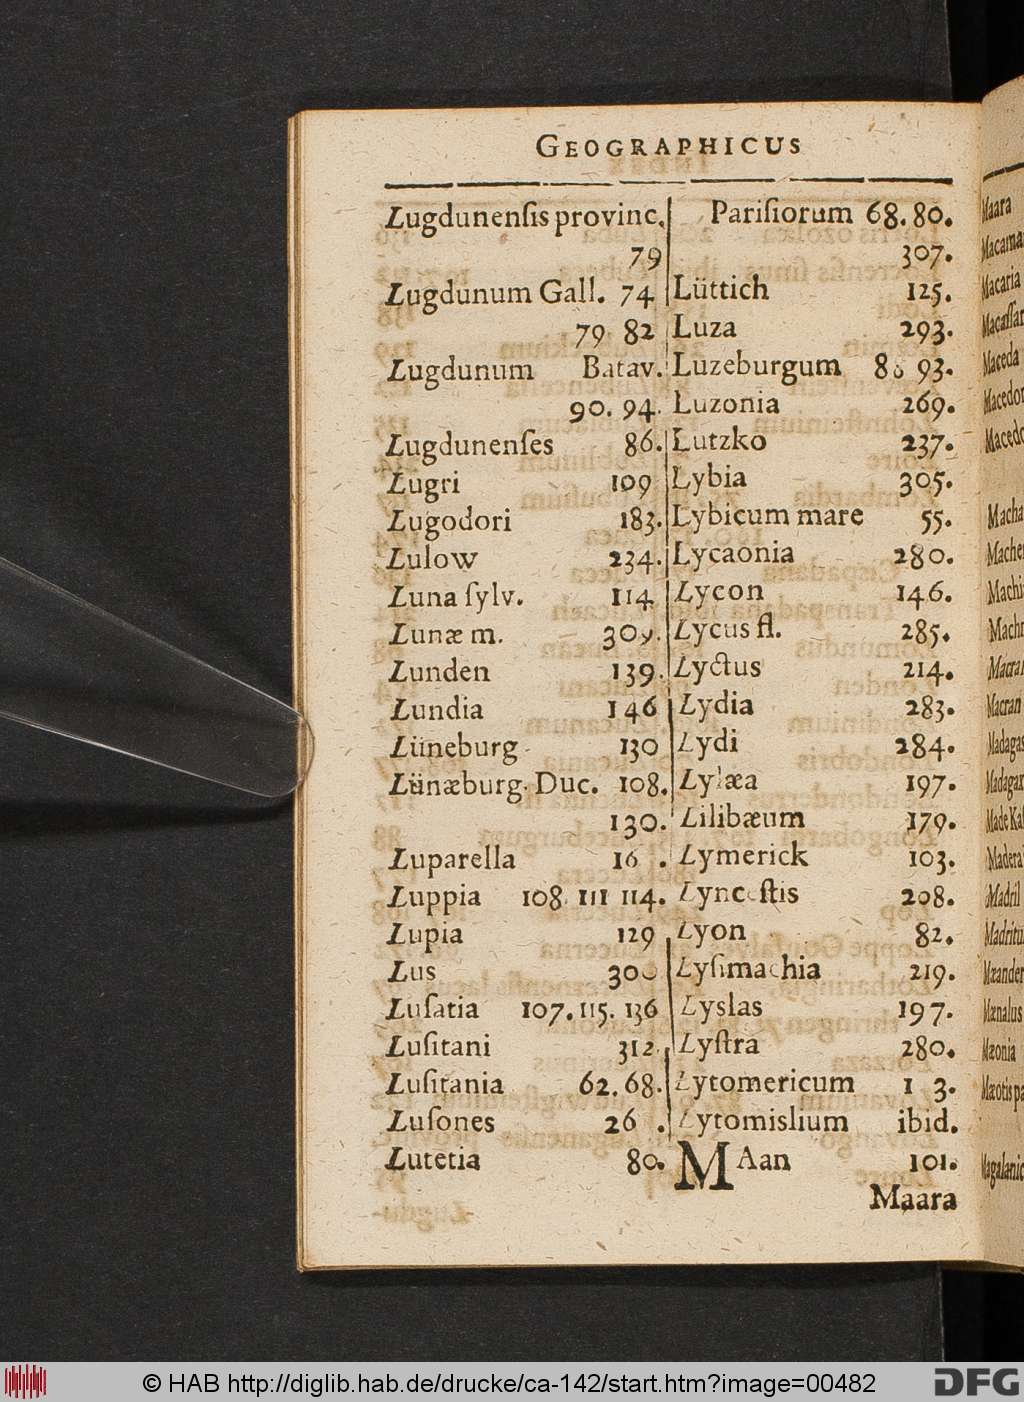 GEOGRAPHICUS
Lugdunenſis provinc.
79
Lugdunum Gall. 74
79 82
Lugdunum Batav.
90. 94.
Lugdunenſes 86.
Lugri 109
Lugodori 183.
Lulow 234.
Luna ſylv. 114
Lunæ m.
Lunden 139.
Lundia 146
Lüneburg 130
Lünæburg. Duc. 108.
130.
Luparella
Luppia 108. 111 114.
Lupia 129
Lus
Luſatia 107. 115. 136
Luſitani 312.
Luſitania 62. 68.
Luſones
Lutetia 80.
Pariſiorum 68. 80.
307.
Lüttich 125.
Luza 293.
Luzeburgum 93.
Luzonia 269.
Lutzko 237.
Lybia 305.
Lybicum mare 55.
Lycaonia 280.
Lycon 146.
Lycus fl. 285.
Lyctus 214.
Lydia 283.
Lydi 284.
197.
Lilibæum 179.
Lymerick 103.
208.
Lyon 82.
Lyſimachia 219.
Lyslas 197.
Lyſtra 280.
Lytomericum
Lytomislium ibid.
MAan 101.
Maara
Maara
Macaria
Maceda
Madril
Mænalus
Mæonia
© HAB http://diglib.hab.de/drucke/ca-142/start.htm?image=00482
DFG